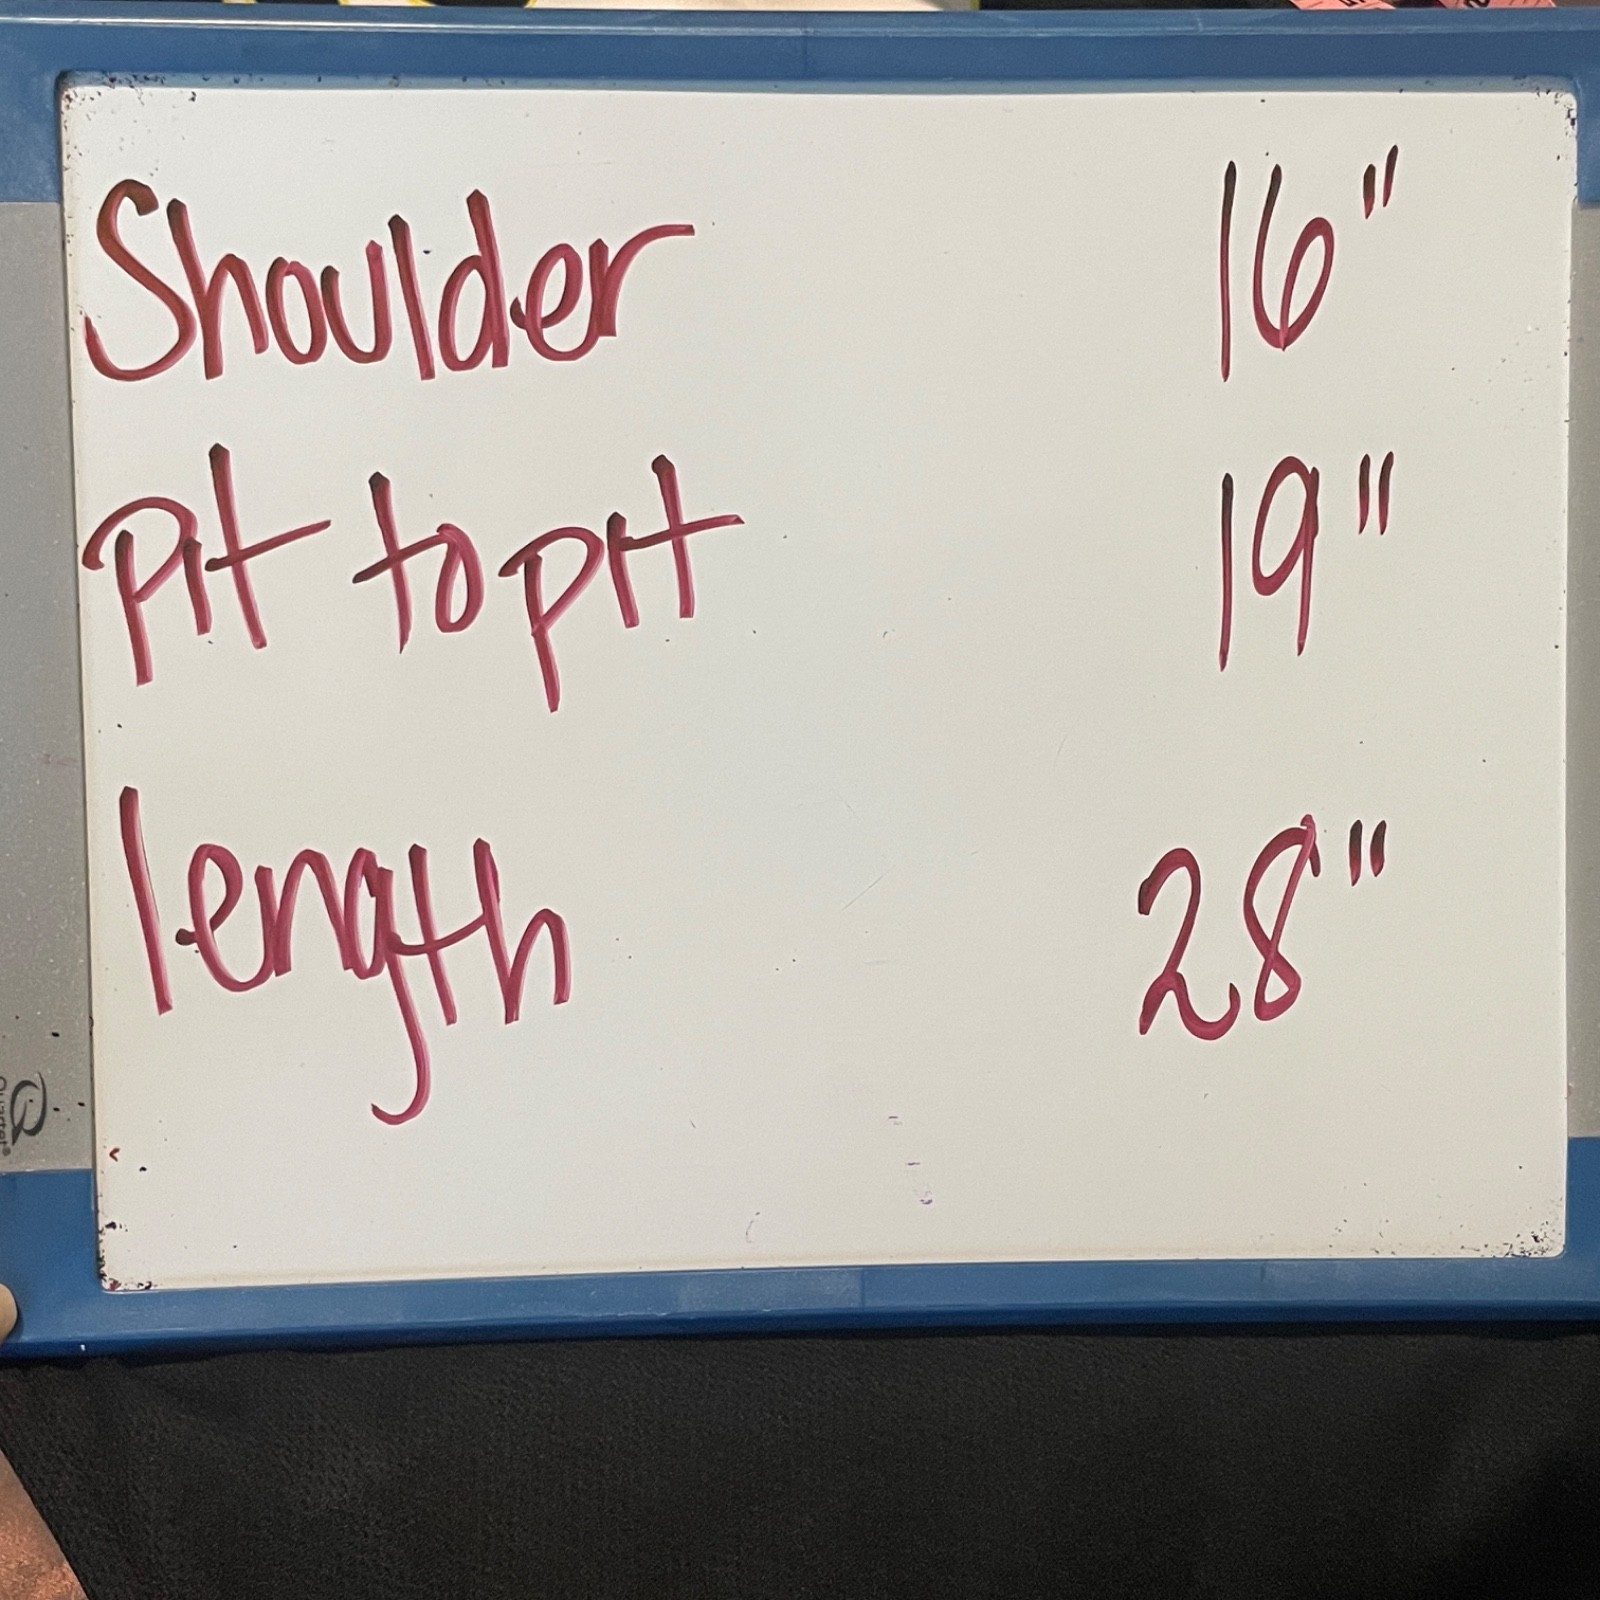 Shoulder 16"
Pit to pit 19"
length 28"
Quartet